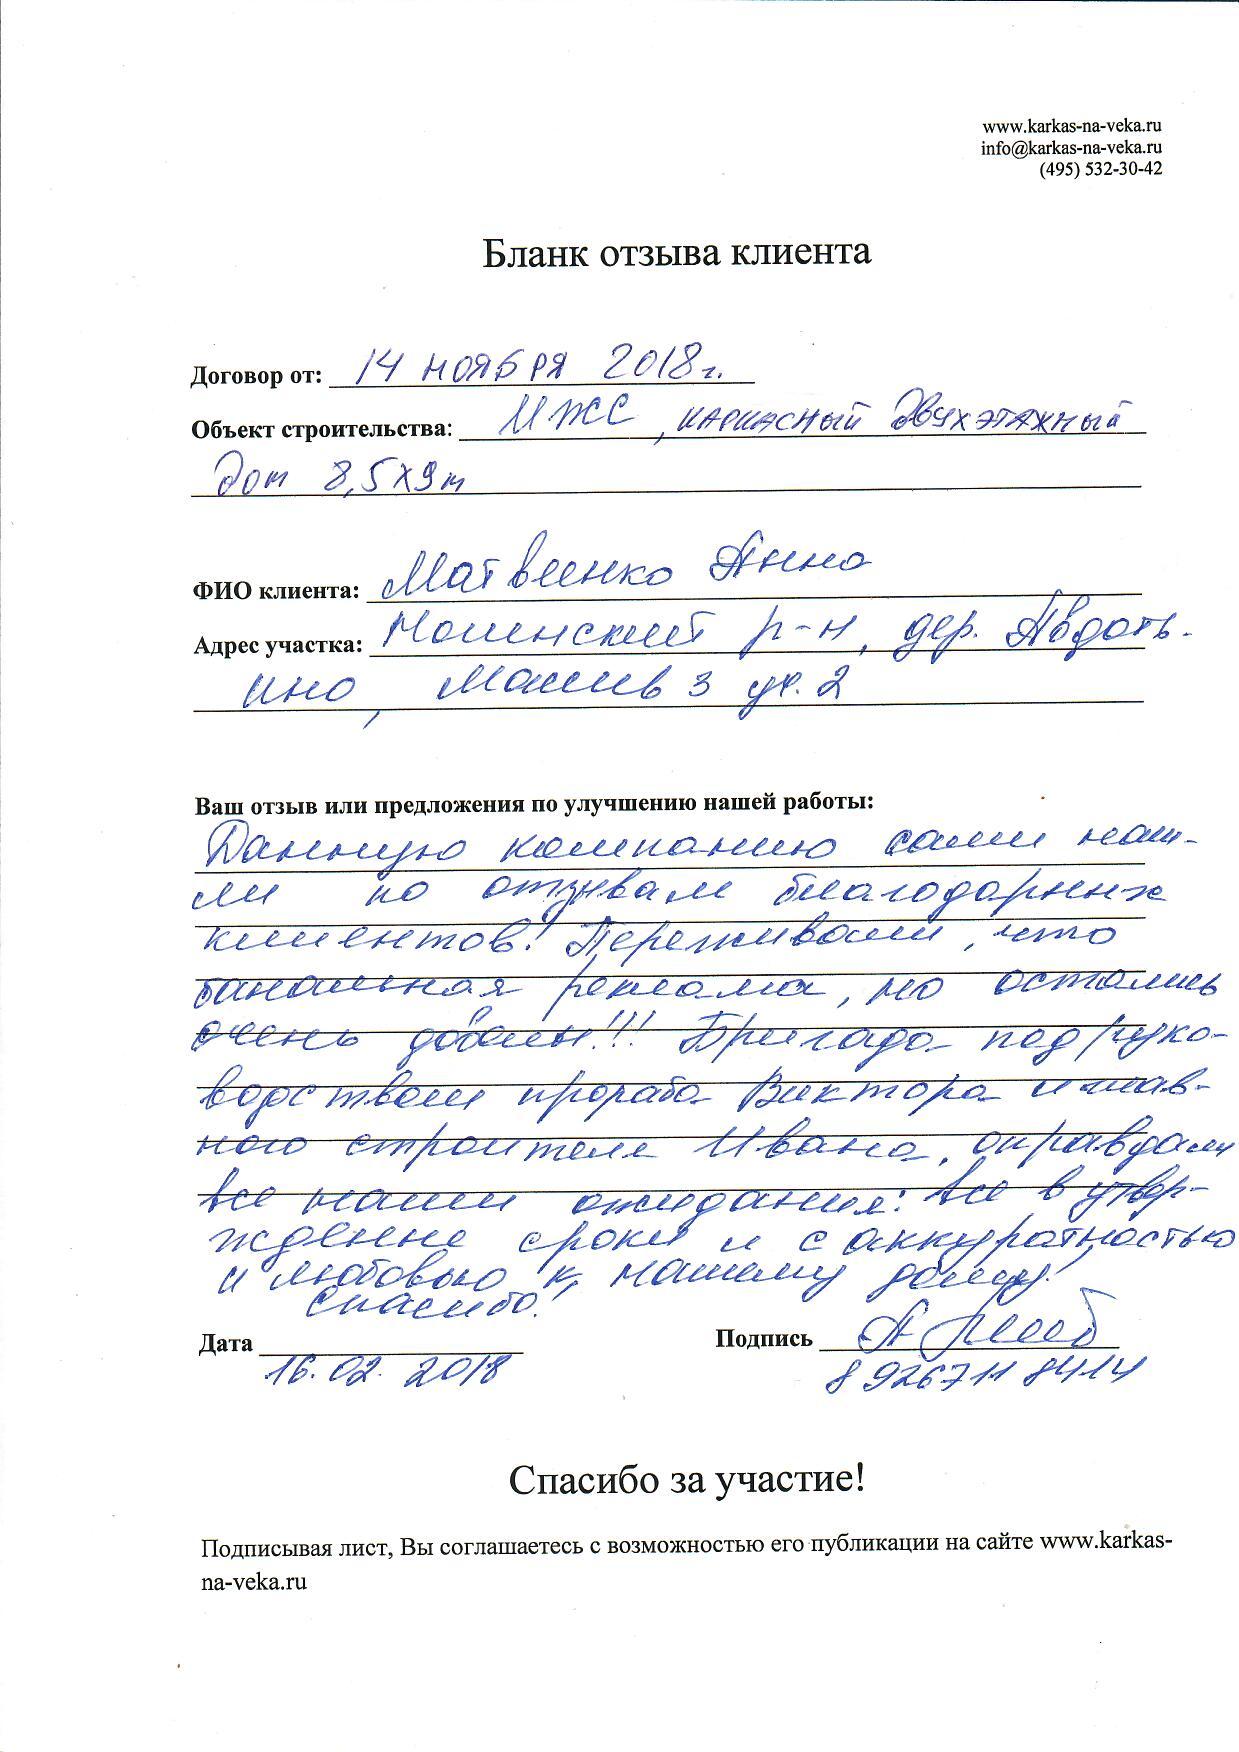 www.karkas-na-veka.ru
info@karkas-na-veka.ru
(495) 532-30-42
Бланк отзыва клиента
Договор от: 14 ноября 2018г.
Объект строительства: ИЖС, каркасный двухэтажный
дом 8,5х9м
ФИО клиента: Матвеенко Анна
Адрес участка: р-н, дер. Авдоть-
ино, Массив 3 уч. 2
Ваш отзыв или предложения по улучшению нашей работы:
Данную компанию сами наш-
ли по отзывам благодарных
клиентов! Переживали, что
банальная реклама, но остались
очень довольны!!! Бригада под руко-
водством прораба Виктора и глав-
ного строителя Ивана, оправдали
все наши ожидания: все в утвер-
жденные сроки и с аккуратностью
и любовью к нашему дому!
Спасибо!
Дата Подпись
16.02.2018 8 926 711 8414
Спасибо за участие!
Подписывая лист, Вы соглашаетесь с возможностью его публикации на сайте www.karkas-
na-veka.ru